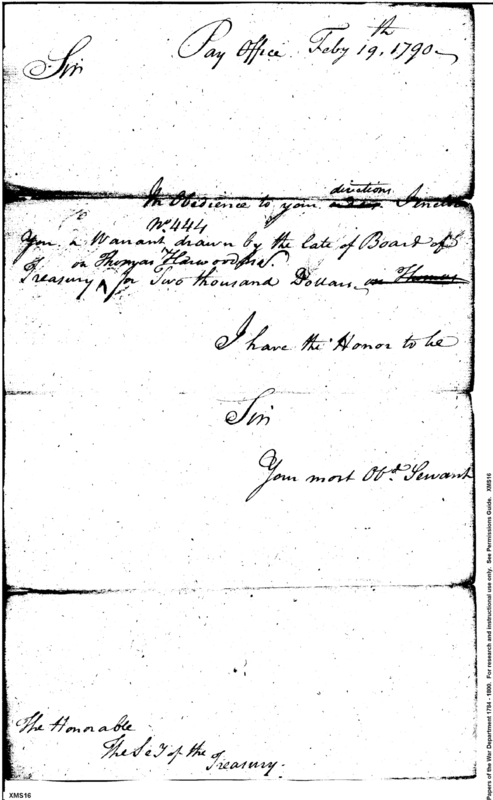 Pay Office Feby 19th, 1790
Sir
In Obedience to your directions I inclose
No. 444
You a Warrant drawn by the late of Board of
on Thomas Harwood
Treasury ^ for Two thousand Dollars, on Thomas
I have the Honor to be
Sir
Your most Obdt Servant
The Honorable
The Secy of the
Treasury.
XMS16
Papers of the War Department 1784 - 1800. For research and instructional use only. See Permissions Guide. XMS16